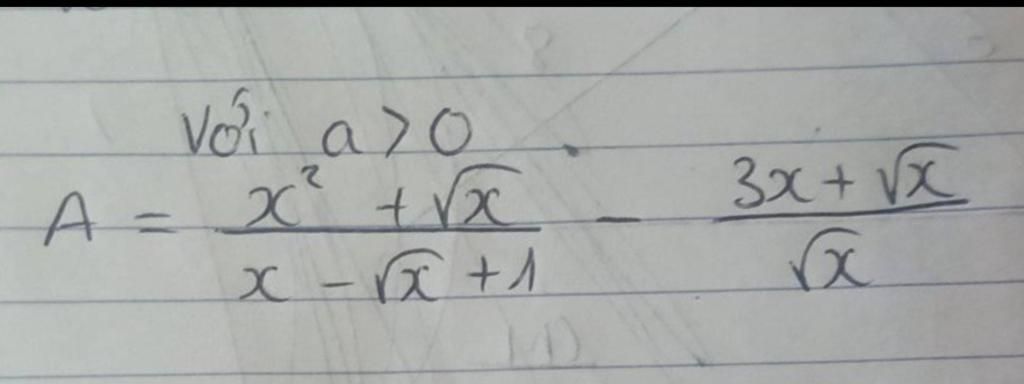 Với a > 0
A = \frac{x^2 + \sqrt{x}}{x - \sqrt{x} + 1} - \frac{3x + \sqrt{x}}{\sqrt{x}}